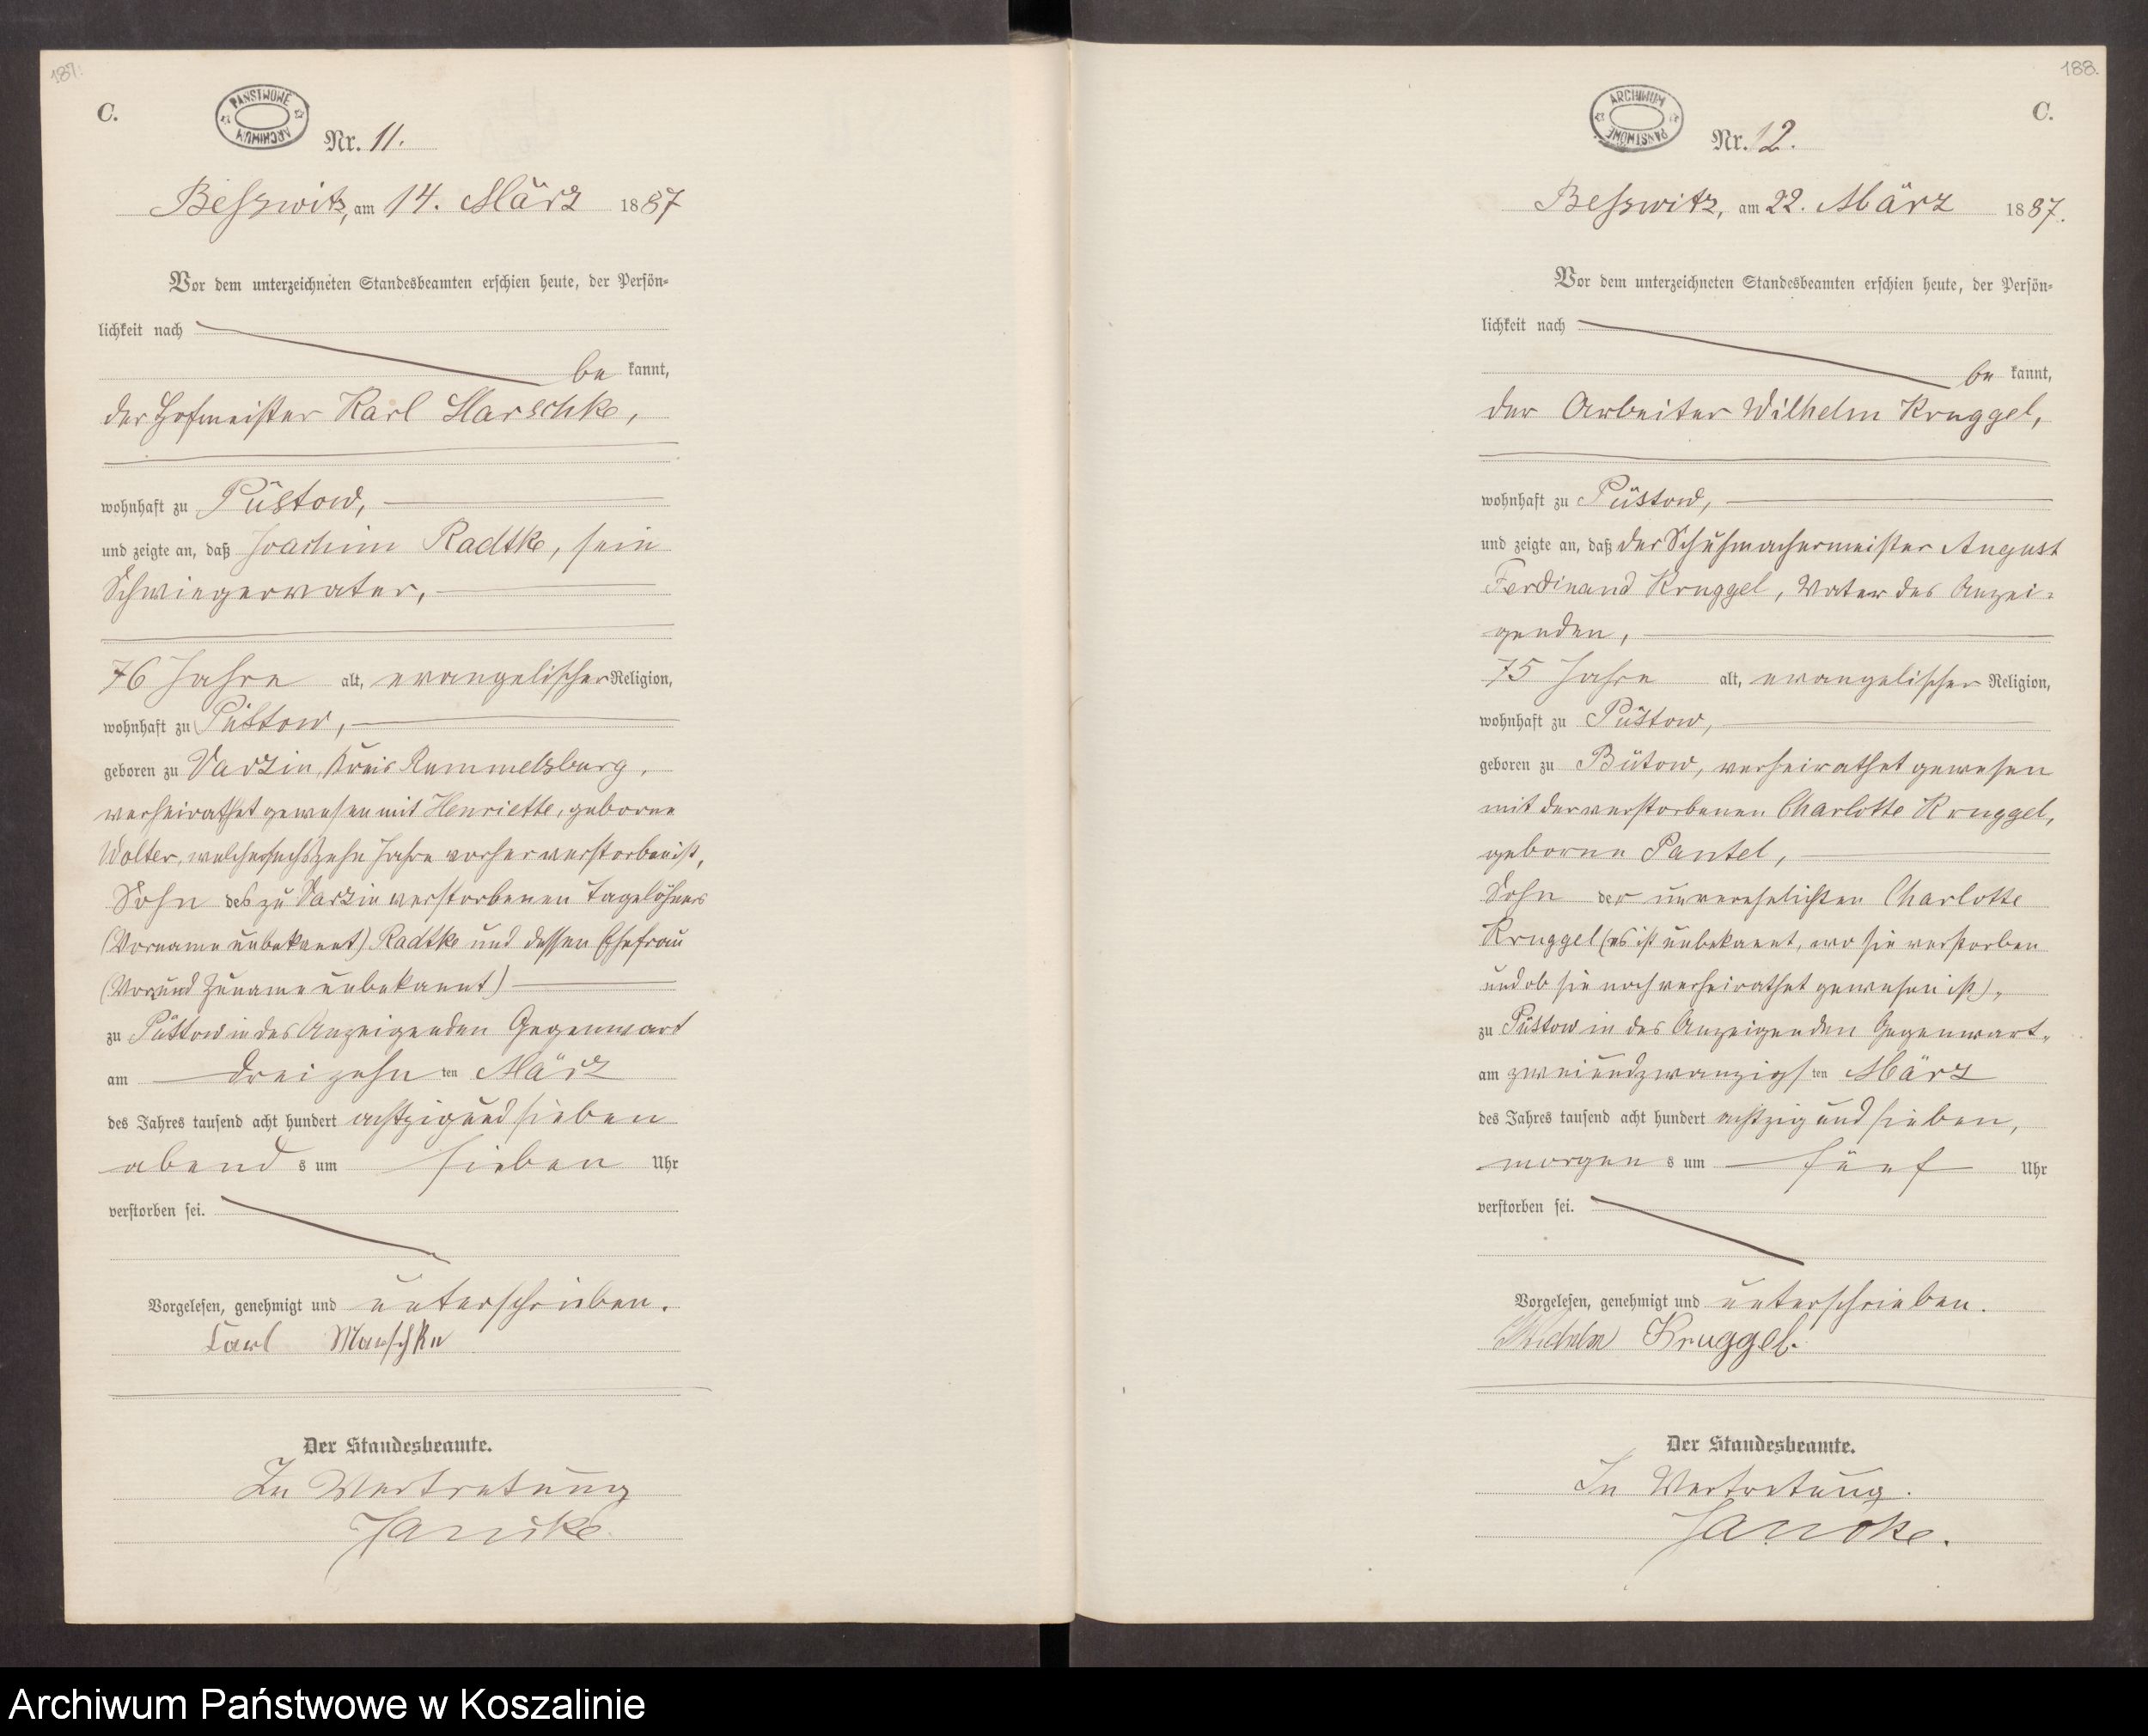 187.
C.
PAŃSTWOWE ARCHIWUM
Nr. 11.
Besswitz, am 14. März 1887
Vor dem unterzeichneten Standesbeamten erschien heute, der Persön-
lichkeit nach
be kannt,
der Hofmeister Karl Marschke,
wohnhaft zu Püstow,
und zeigte an, daß Joachim Radtke, sein
Schwiegervater,
76 Jahre alt, evangelischer Religion,
wohnhaft zu Püstow,
geboren zu Varzin, Kreis Rummelsburg,
verheirathet gewesen mit Henriette, geborne
Wolter, welche sechszehn Jahre vorher verstorben ist,
Sohn des zu Varzin verstorbenen Tagelöhners
(Vorname unbekannt) Radtke und dessen Ehefrau
(Vor und Zuname unbekannt)
zu Püstow in des Anzeigenden Gegenwart
am dreizehn ten März
des Jahres tausend acht hundert achtzig und sieben
abend s um sieben Uhr
verstorben sei.
Vorgelesen, genehmigt und unterschrieben.
Karl Marschke
Der Standesbeamte.
In Vertretung
Jancke.
188.
C.
ARCHIWUM PAŃSTWOWE
Nr. 12.
Besswitz, am 22. März 1887.
Vor dem unterzeichneten Standesbeamten erschien heute, der Persön-
lichkeit nach
be kannt,
der Arbeiter Wilhelm Kruggel,
wohnhaft zu Püstow,
und zeigte an, daß der Schuhmachermeister August
Ferdinand Kruggel, Vater des Anzei-
genden,
75 Jahre alt, evangelischer Religion,
wohnhaft zu Püstow,
geboren zu Bütow, verheirathet gewesen
mit der verstorbenen Charlotte Kruggel,
geborne Pantel,
Sohn der unverehelichten Charlotte
Kruggel (es ist unbekannt, wo sie verstorben
und ob sie noch verheirathet gewesen ist),
zu Püstow in des Anzeigenden Gegenwart,
am zweiundzwanzigs ten März
des Jahres tausend acht hundert achtzig und sieben,
morgen s um fünf Uhr
verstorben sei.
Vorgelesen, genehmigt und unterschrieben.
Wilhelm Kruggel.
Der Standesbeamte.
In Vertretung.
Jancke.
Archiwum Państwowe w Koszalinie